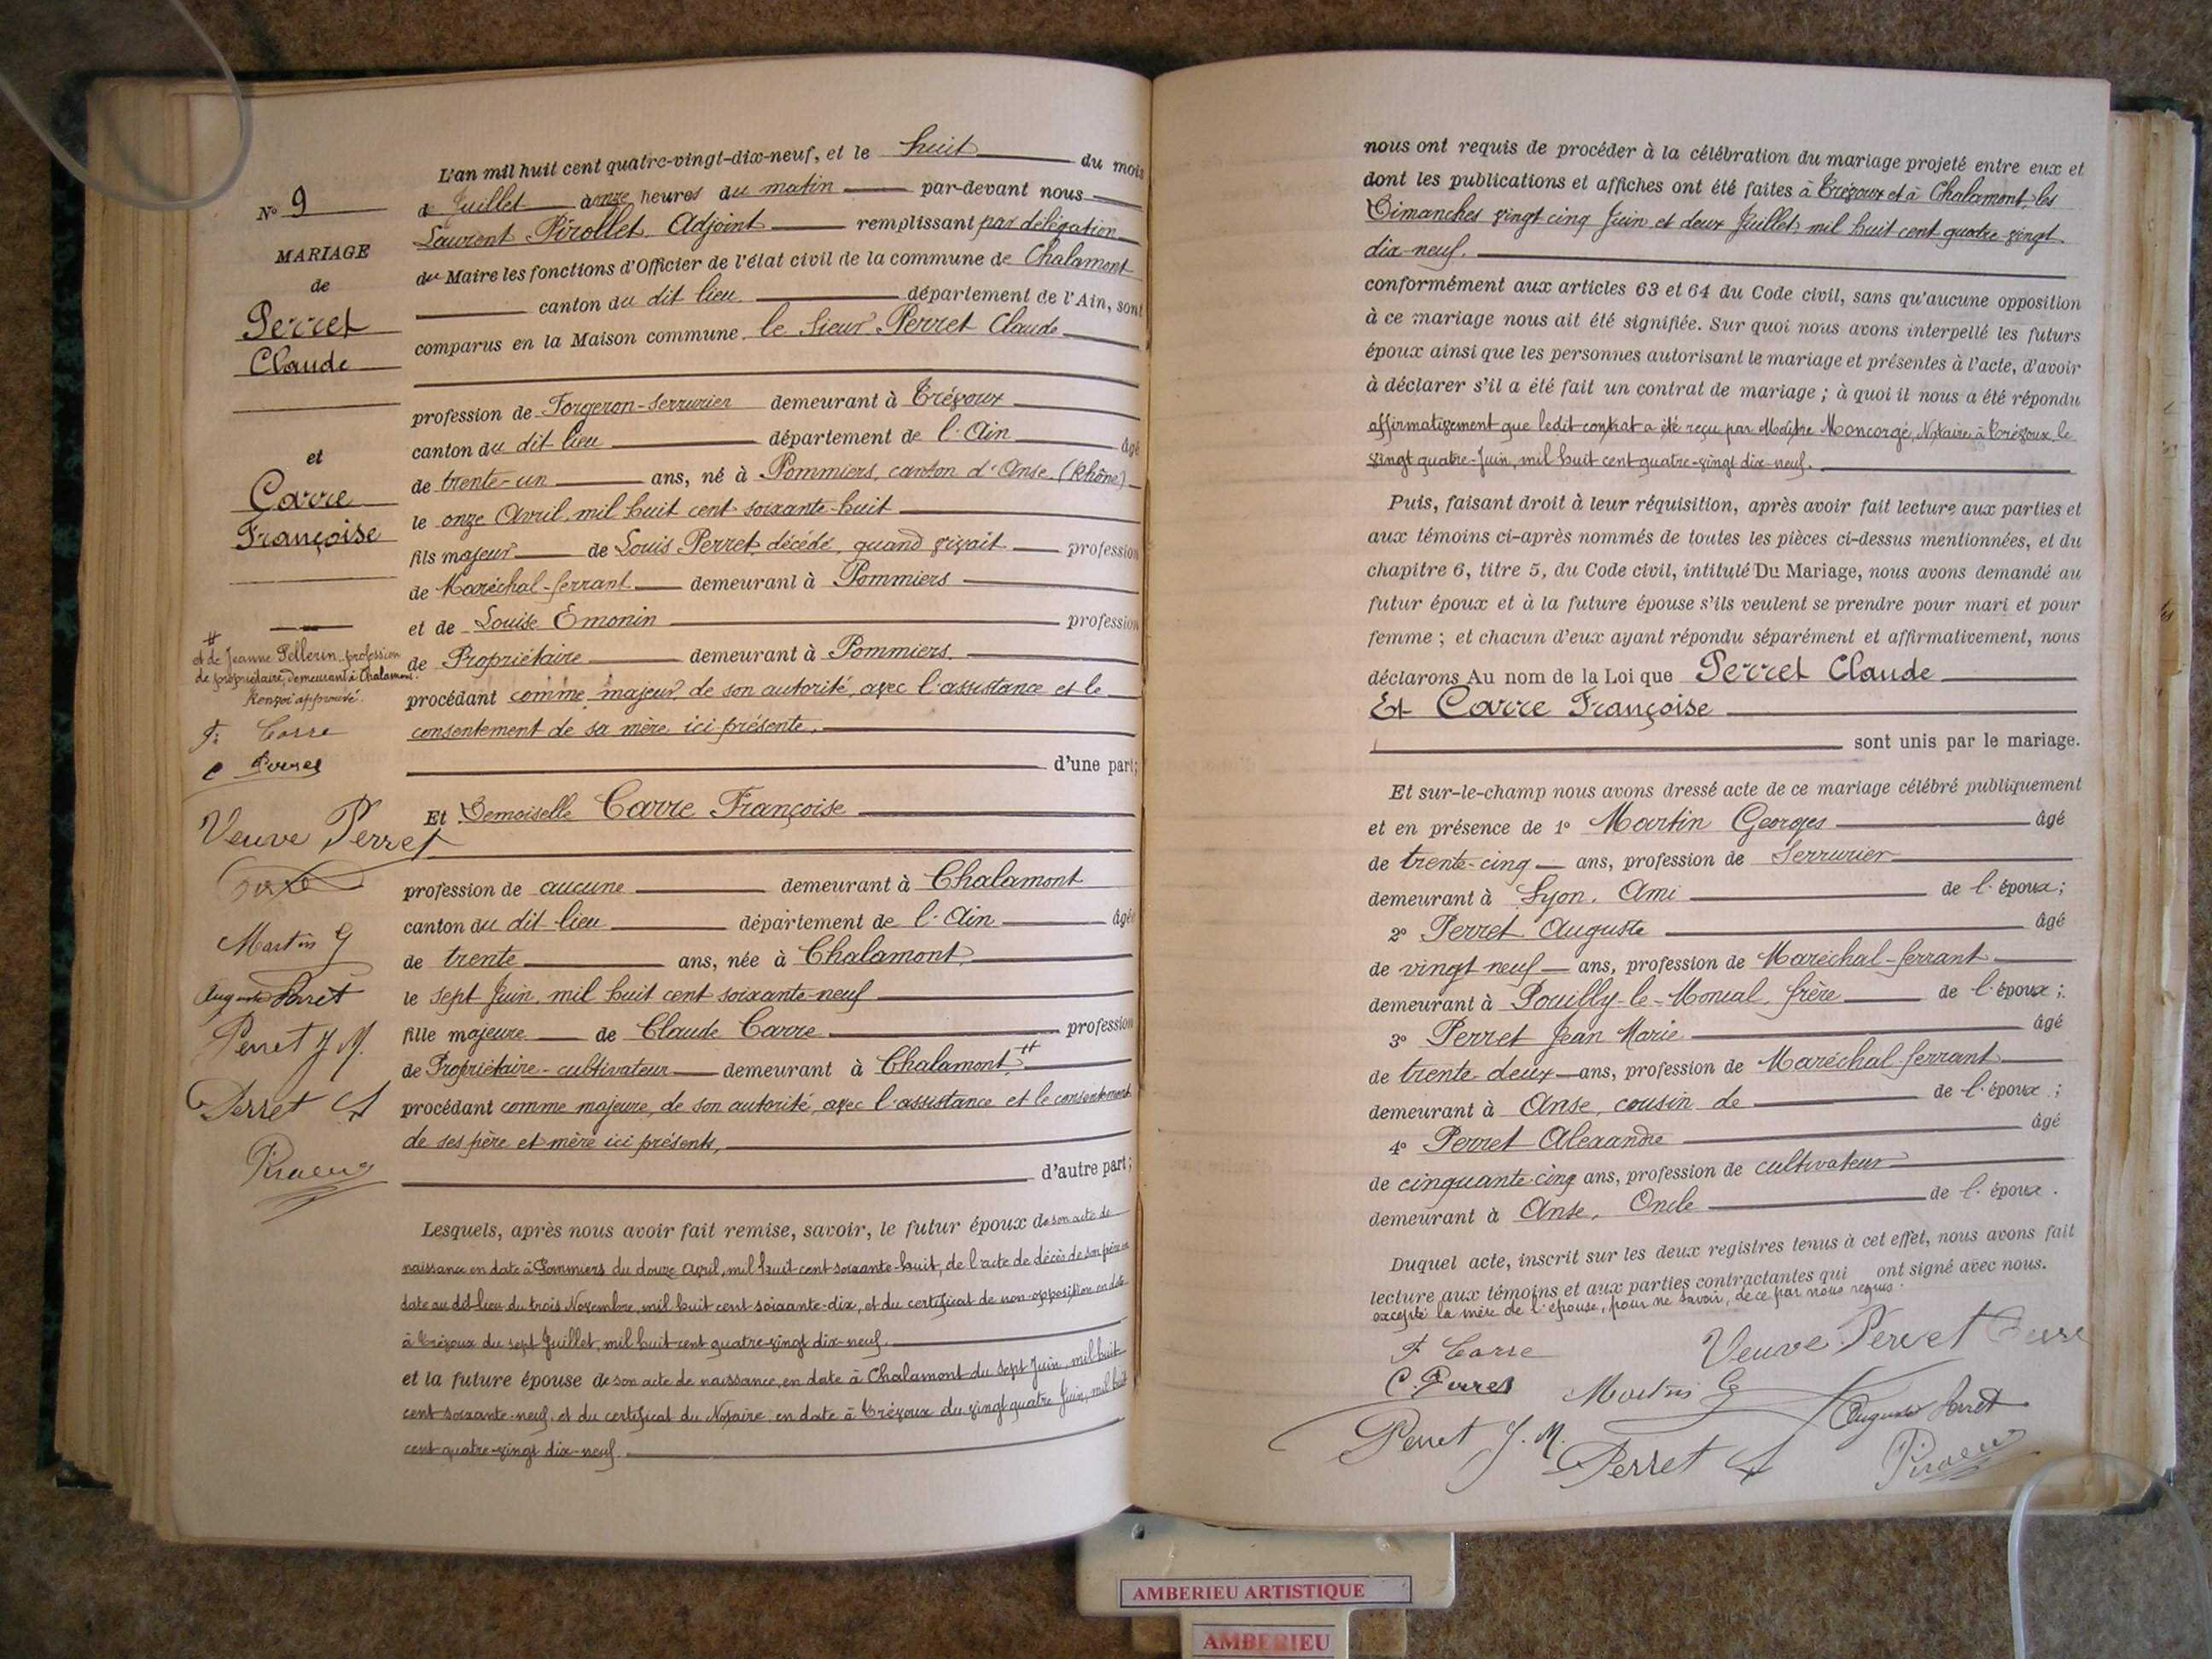 N° 9
MARIAGE
de
Perret
Claude
et
Carre
Françoise
#
et de Jeanne Pellerin, profession
de propriétaire, demeurant à Chalamont.
Renvoi approuvé.
F. Carre
C Perret
Veuve Perret
Carre
Martin G
Auguste Perret
Perret J M.
Perret A
L'an mil huit cent quatre-vingt-dix-neuf, et le huit du mois
de Juillet à onze heures du matin par-devant nous
Laurent Pirollet, Adjoint remplissant par délégation
du Maire les fonctions d'Officier de l'état civil de la commune de Chalamont
canton du dit lieu département de l'Ain, sont
comparus en la Maison commune le Sieur Perret Claude
profession de Forgeron-Serrurier demeurant à Trévoux
canton du dit lieu département de l'Ain âgé
de trente-un ans, né à Pommiers, canton d'Anse, (Rhône)
le onze Avril, mil huit cent soixante-huit
fils majeur de Louis Perret, décédé, quand vivait profession
de Maréchal-ferrant demeurant à Pommiers
et de Louise Emonin profession
de Propriétaire demeurant à Pommiers.
procédant comme majeur, de son autorité, avec l'assistance et le
consentement de sa mère, ici présente,
d'une part;
Et Demoiselle Carre Françoise
profession de aucune demeurant à Chalamont
canton du dit lieu département de l'Ain âgée
de trente ans, née à Chalamont,
le sept Juin, mil huit cent soixante-neuf
fille majeure de Claude Carre profession
de Propriétaire-cultivateur demeurant à Chalamont #
procédant comme majeure, de son autorité, avec l'assistance et le consentement
de ses père et mère ici présents,
d'autre part;
Lesquels, après nous avoir fait remise, savoir, le futur époux de son acte de
naissance en date à Pommiers du douze Avril, mil huit cent soixante-huit, de l'acte de décès de son père en
date au dit lieu du trois Novembre, mil huit cent soixante-dix, et du certificat de non-opposition en date
à Trévoux du sept Juillet, mil huit cent quatre-vingt dix-neuf.
et la future épouse de son acte de naissance, en date à Chalamont du sept Juin, mil huit
cent soixante-neuf, et du certificat du Notaire en date à Trévoux du vingt quatre Juin, mil huit
cent quatre-vingt dix-neuf.
nous ont requis de procéder à la célébration du mariage projeté entre eux et
dont les publications et affiches ont été faites à Trévoux et à Chalamont, les
Dimanches vingt cinq Juin et deux Juillet, mil huit cent quatre-vingt
dix-neuf.
conformément aux articles 63 et 64 du Code civil, sans qu'aucune opposition
à ce mariage nous ait été signifiée. Sur quoi nous avons interpellé les futurs
époux ainsi que les personnes autorisant le mariage et présentes à l'acte, d'avoir
à déclarer s'il a été fait un contrat de mariage; à quoi il nous a été répondu
affirmativement que ledit contrat a été reçu par Maître Moncorgé, Notaire, à Trévoux, le
vingt quatre-Juin, mil huit cent quatre-vingt dix-neuf.
Puis, faisant droit à leur réquisition, après avoir fait lecture aux parties et
aux témoins ci-après nommés de toutes les pièces ci-dessus mentionnées, et du
chapitre 6, titre 5, du Code civil, intitulé Du Mariage, nous avons demandé au
futur époux et à la future épouse s'ils veulent se prendre pour mari et pour
femme; et chacun d'eux ayant répondu séparément et affirmativement, nous
déclarons Au nom de la Loi que Perret Claude
Et Carre Françoise
sont unis par le mariage.
Et sur-le-champ nous avons dressé acte de ce mariage célébré publiquement
et en présence de 1° Martin Georges âgé
de trente-cinq ans, profession de Serrurier
demeurant à Lyon. Ami de l'époux;
2° Perret Auguste âgé
de vingt neuf ans, profession de Maréchal-ferrant
demeurant à Pouilly-le-Monial, frère de l'époux;
3° Perret Jean Marie âgé
de trente-deux ans, profession de Maréchal ferrant
demeurant à Anse, cousin de de l'époux;
4° Perret Alexandre âgé
de cinquante-cinq ans, profession de cultivateur
demeurant à Anse, Oncle de l'époux.
Duquel acte, inscrit sur les deux registres tenus à cet effet, nous avons fait
lecture aux témoins et aux parties contractantes qui ont signé avec nous.
excepté la mère de l'épouse, pour ne savoir, de ce par nous requis.
F. Carre Veuve Perret Carre
C. Perret Martin G Auguste Perret
Perret J. M. Perret A
AMBERIEU ARTISTIQUE
AMBERIEU